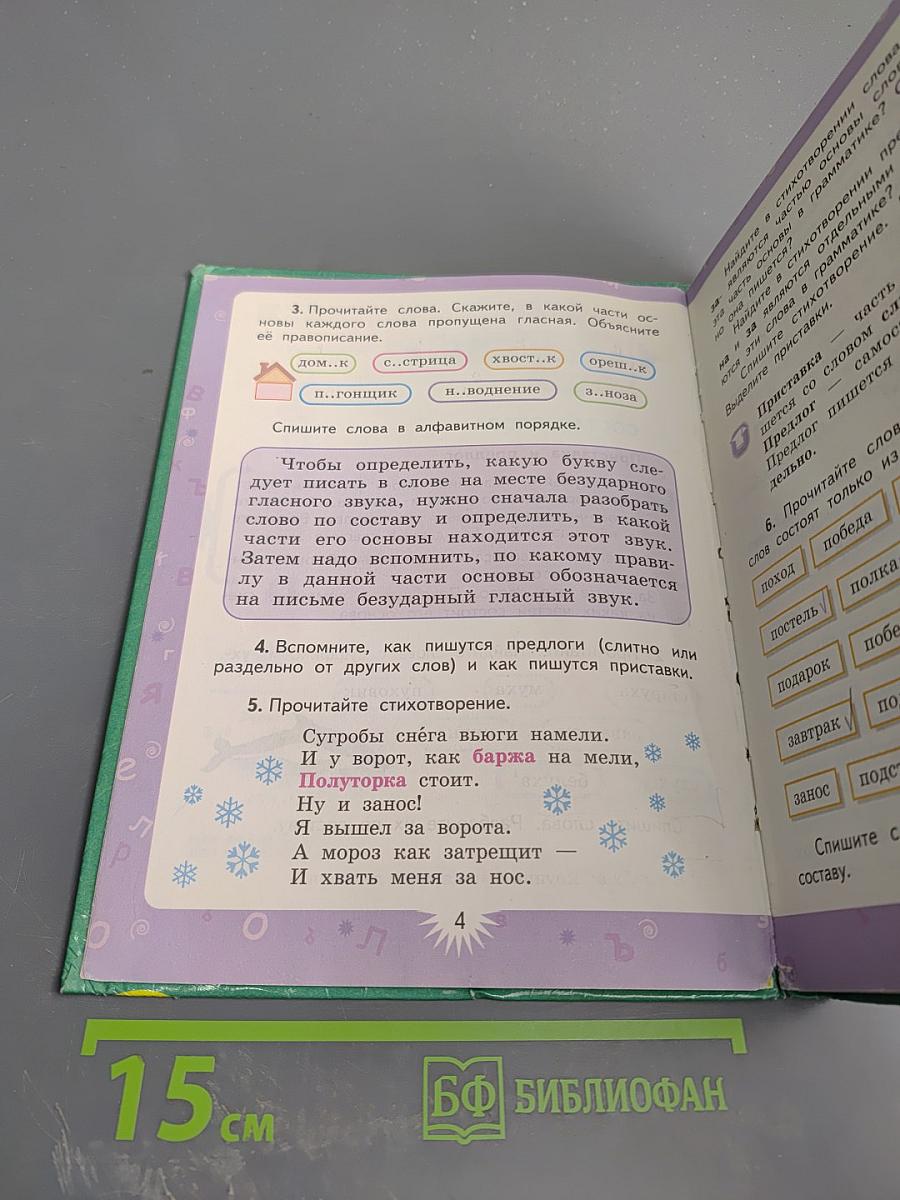 3. Прочитайте слова. Скажите, в какой части ос-
новы каждого слова пропущена гласная. Объясните
её правописание.
дом..к
с..стрица
хвост..к
ореш..к
п..гонщик
н..воднение
з..ноза
Спишите слова в алфавитном порядке.
Чтобы определить, какую букву сле-
дует писать в слове на месте безударного
гласного звука, нужно сначала разобрать
слово по составу и определить, в какой
части его основы находится этот звук.
Затем надо вспомнить, по какому прави-
лу в данной части основы обозначается
на письме безударный гласный звук.
4. Вспомните, как пишутся предлоги (слитно или
раздельно от других слов) и как пишутся приставки.
5. Прочитайте стихотворение.
Сугробы сне́га вьюги намели.
И у ворот, как баржа на мели,
Полуторка стоит.
Ну и занос!
Я вышел за ворота.
А мороз как затрещит —
И хвать меня за нос.
4
Найдите в стихотворении слова
за-
являются частью основы
эта часть основы в грамматике?
но она пишется?
Найдите в стихотворении
на и за являются отдельными
ются эти слова в грамматике?
Спишите стихотворение.
Выделите приставки.
Приставка — часть
шется со словом
Предлог —
Предлог пишется
дельно.
6. Прочитайте
слов состоят только из
поход
победа
постель
подарок
завтрак
занос
Спишите
составу.
15 см
БФ БИБЛИОФАН